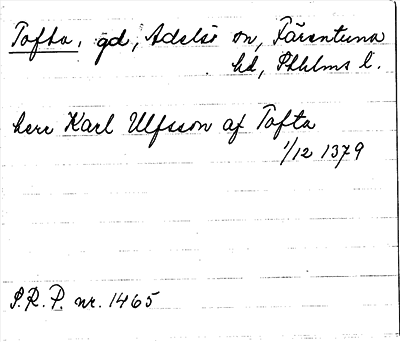 Tofta, gd, Adelsö sn, Färentuna
hd, Sthlms l.
herr Karl Ulfsson af Tofta
1/12 1379
S.R.P. nr. 1465